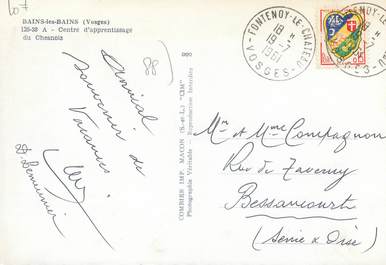 BAINS-les-BAINS (Vosges)
125-28 A - Centre d'apprentissage
du Chesnois
Amical
souvenir de
Vacances
COMBIER IMP. MACON (S.-et-L.) "CIM"
Photographie Véritable - Reproduction Interdite
FONTENOY-LE-CHATEAU
18 H
19-7
1961
VOSGES
Mr et Mme Compagnon
Rue de Taverny
Bessancourt
(Seine & Oise)